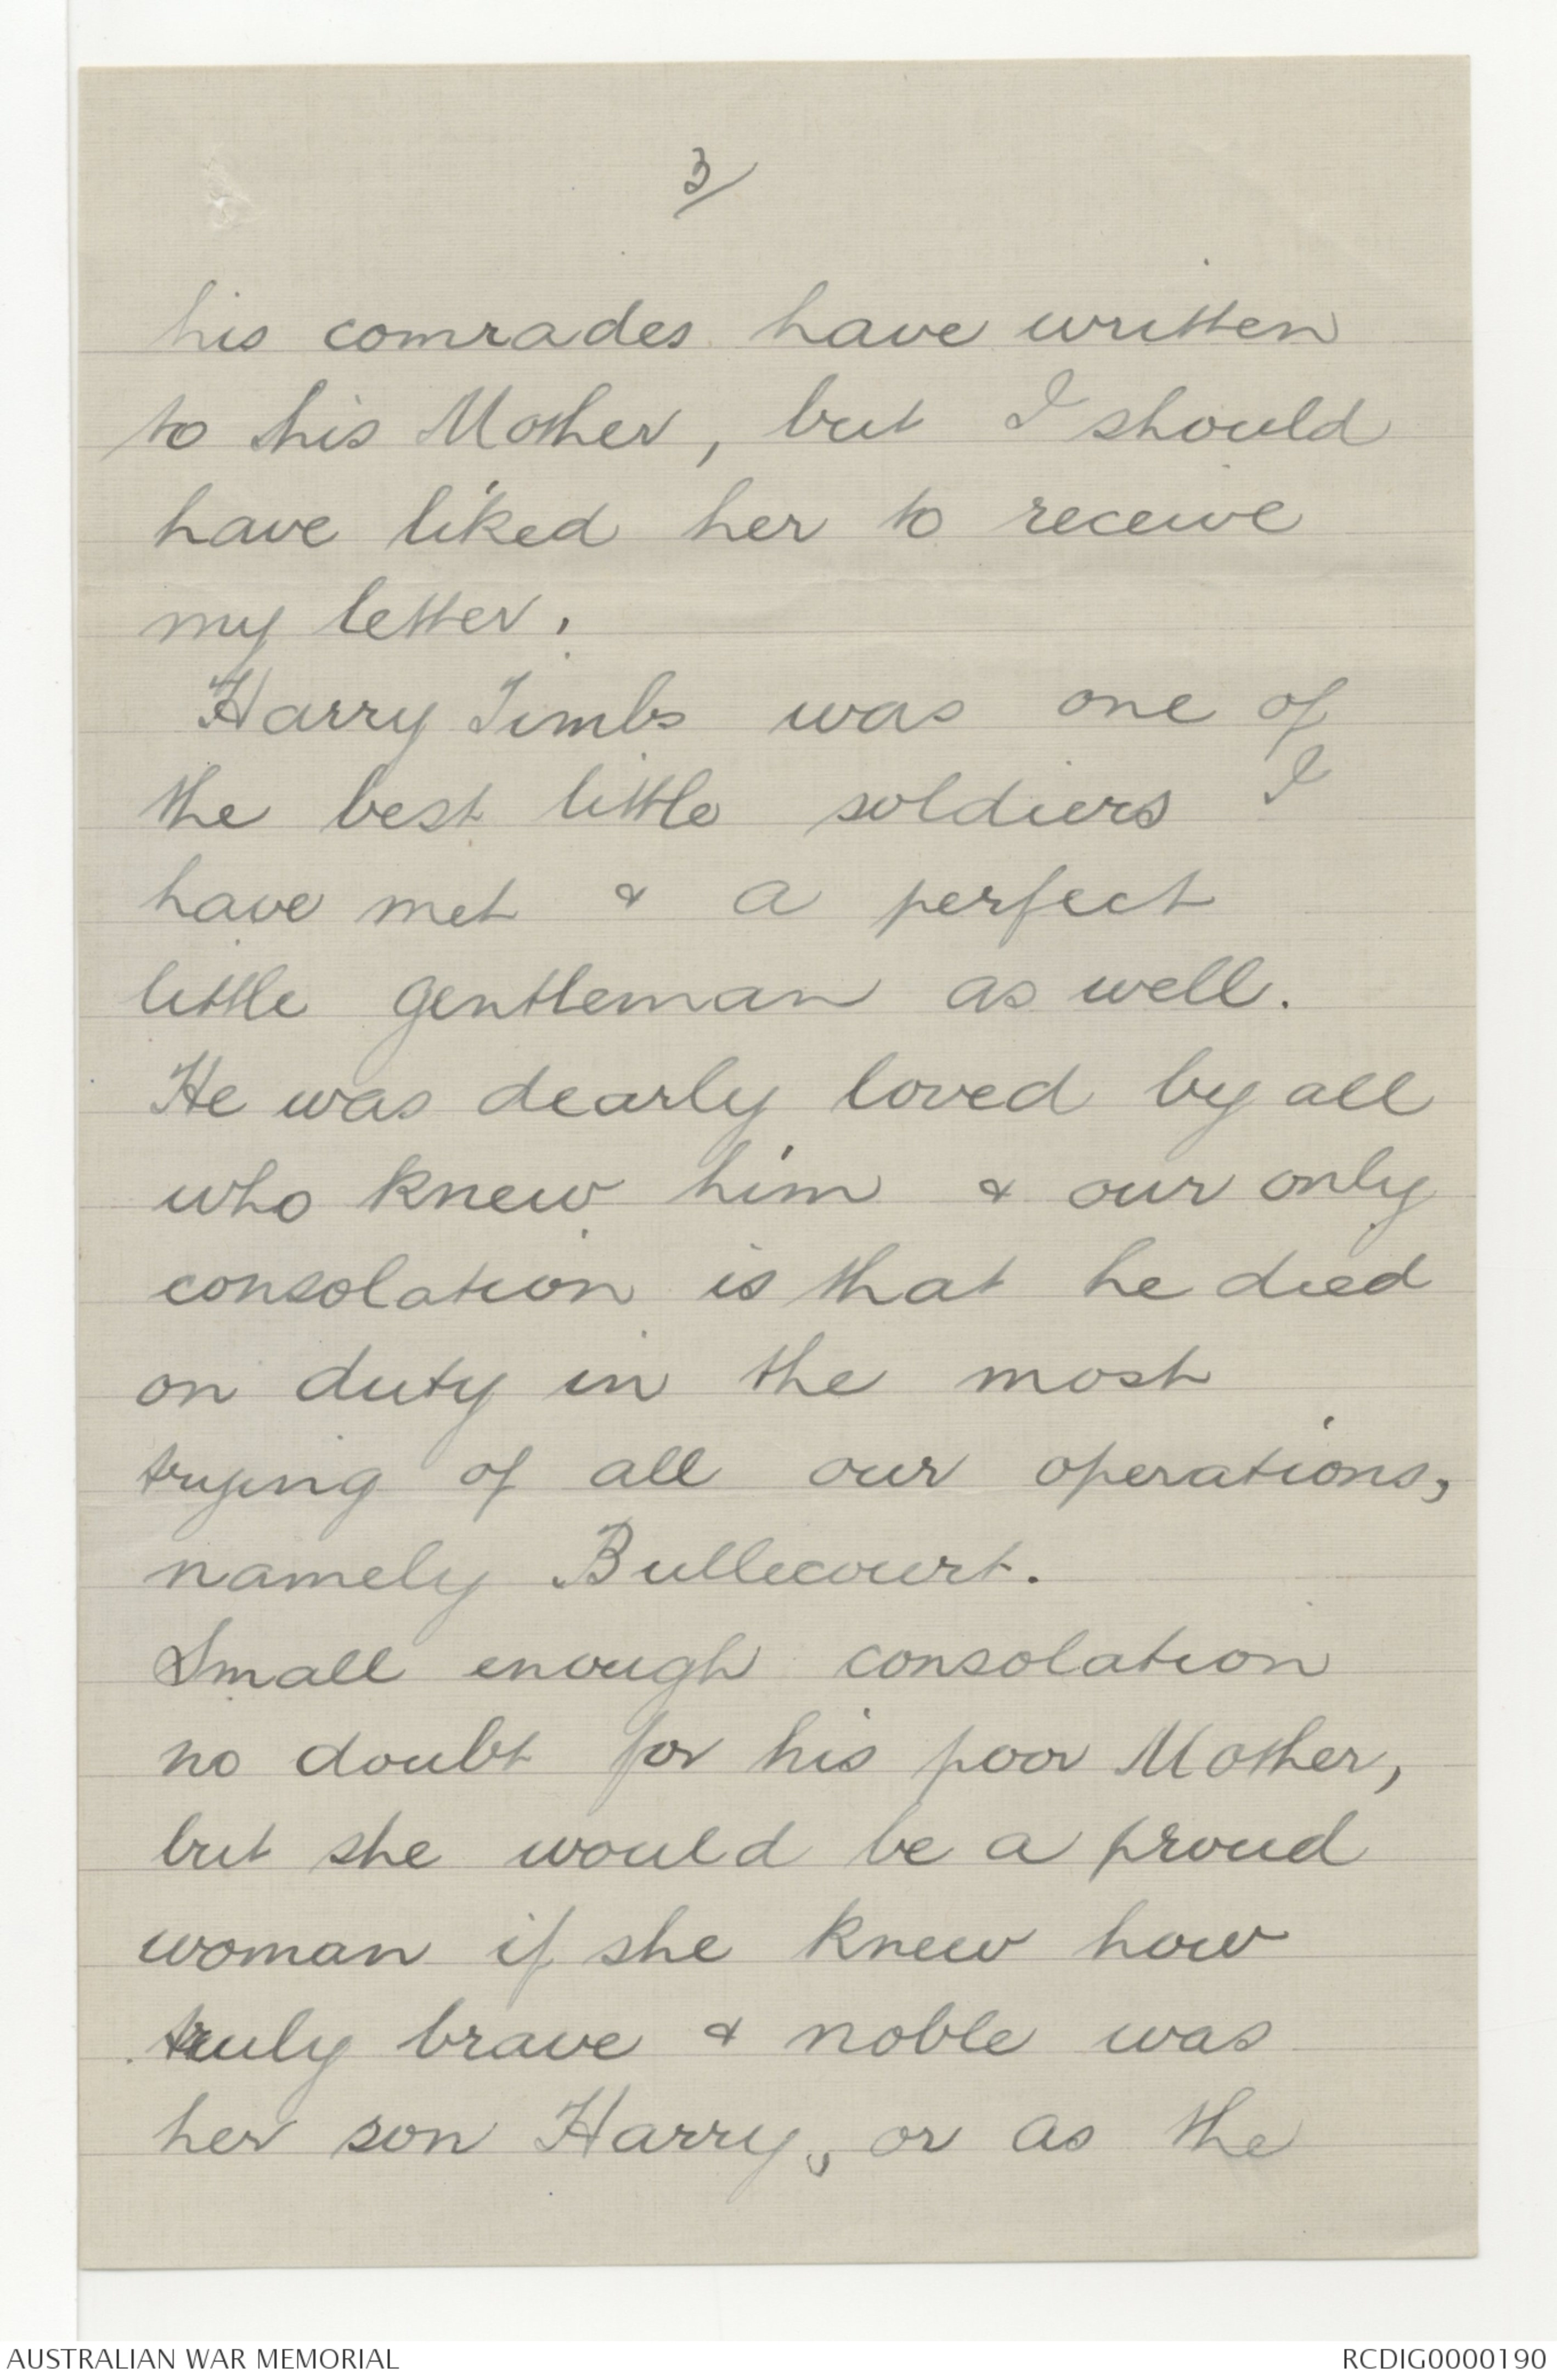 3/
his comrades have written
to his Mother, but I should
have liked her to receive
my letter.
Harry Timbs was one of
the best little soldiers I
have met & a perfect
little gentleman as well.
He was dearly loved by all
who knew him & our only
consolation is that he died
on duty in the most
trying of all our operations,
namely Bullecourt.
Small enough consolation
no doubt for his poor Mother,
but she would be a proud
woman if she knew how
truly brave & noble was
her son Harry, or as the
AUSTRALIAN WAR MEMORIAL
RCDIG0000190